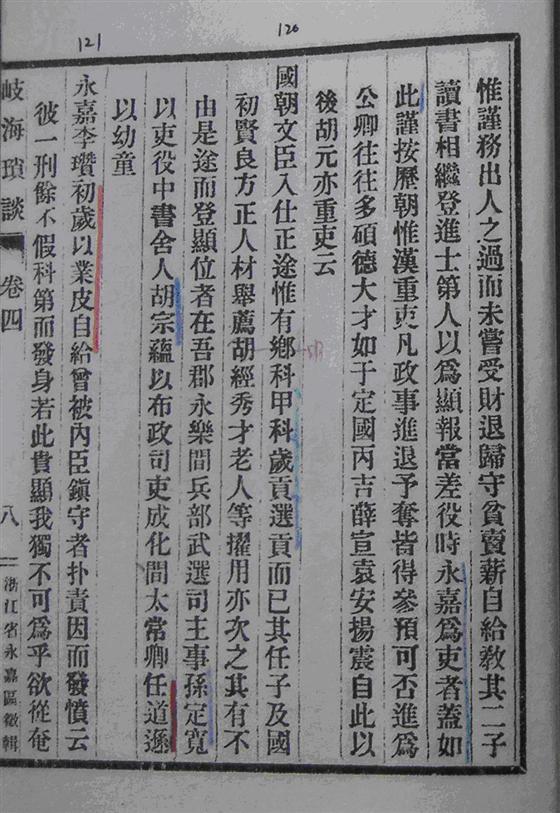 121
120
惟謹務出人之過而未嘗受財退歸守貧賣薪自給教其二子
讀書相繼登進士第人以爲顯報當差役時永嘉爲吏者蓋如
此謹按歷朝惟漢重吏凡政事進退予奪皆得參預可否進爲
公卿往往多碩德大才如于定國丙吉薛宣袁安揚震自此以
後胡元亦重吏云
國朝文臣入仕正途惟有鄉科甲科歲貢選貢而已其任子及國
初賢良方正人材舉薦胡經秀才老人等擢用亦次之其有不
由是途而登顯位者在吾郡永樂間兵部武選司主事孫定寬
以吏役中書舍人胡宗蘊以布政司吏成化間太常卿任道遜
以幼童
永嘉李瓚初歲以業皮自給曾被內臣鎮守者扑責因而發憤云
彼一刑餘不假科第而發身若此貴顯我獨不可爲乎欲從奄
岐海瑣談 卷四 八 浙江省永嘉區徵輯